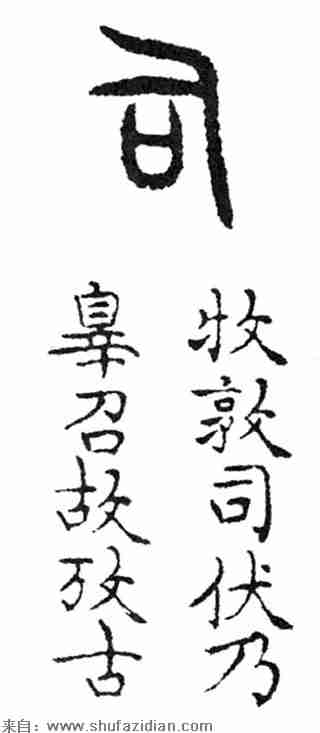 司
牧敦司伏乃
辠召故攷古
来自：www.shufazidian.com